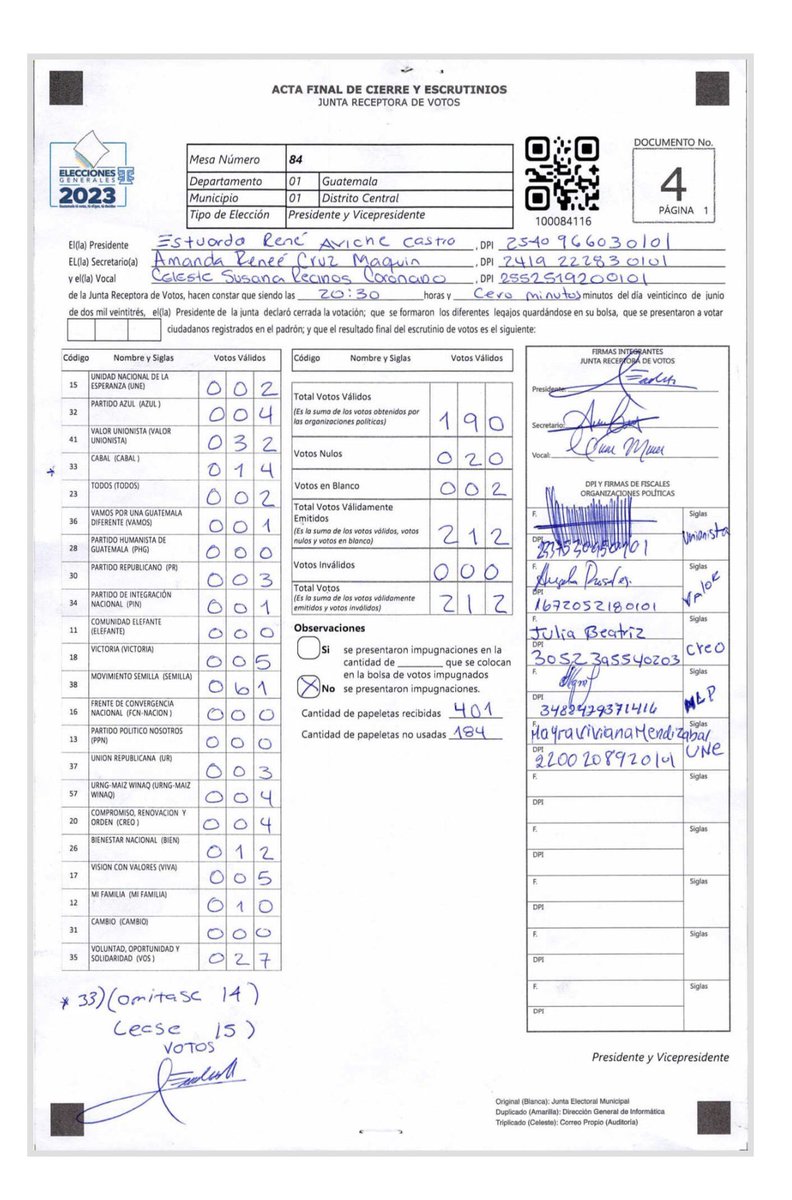 ACTA FINAL DE CIERRE Y ESCRUTINIOS
JUNTA RECEPTORA DE VOTOS
ELECCIONES
GENERALES
2023
Mesa Número 84
Departamento 01 Guatemala
Municipio 01 Distrito Central
Tipo de Elección Presidente y Vicepresidente
100084116
DOCUMENTO No.
4
PÁGINA 1
El(la) Presidente Estuardo René Aviche Castro, DPI 2540 96603 0101
EL(la) Secretario(a) Amanda Reneé Cruz Maquin, DPI 2419 22283 0101
y el(la) Vocal Celeste Susana Recinos Coronado, DPI 2552519200101
de la Junta Receptora de Votos, hacen constar que siendo las 20:30 horas y Cero minutos minutos del día veinticinco de junio
de dos mil veintitrés, el(la) Presidente de la junta declaró cerrada la votación; que se formaron los diferentes legajos guardándose en su bolsa, que se presentaron a votar
ciudadanos registrados en el padrón; y que el resultado final del escrutinio de votos es el siguiente:
Código Nombre y Siglas Votos Válidos
15 UNIDAD NACIONAL DE LA ESPERANZA (UNE) 0 0 2
32 PARTIDO AZUL (AZUL ) 0 0 4
41 VALOR UNIONISTA (VALOR UNIONISTA) 0 3 2
* 33 CABAL (CABAL ) 0 1 4
23 TODOS (TODOS) 0 0 2
36 VAMOS POR UNA GUATEMALA DIFERENTE (VAMOS) 0 0 1
28 PARTIDO HUMANISTA DE GUATEMALA (PHG) 0 0 0
30 PARTIDO REPUBLICANO (PR) 0 0 3
34 PARTIDO DE INTEGRACIÓN NACIONAL (PIN) 0 0 1
11 COMUNIDAD ELEFANTE (ELEFANTE) 0 0 0
18 VICTORIA (VICTORIA) 0 0 5
38 MOVIMIENTO SEMILLA (SEMILLA) 0 6 1
16 FRENTE DE CONVERGENCIA NACIONAL (FCN-NACION ) 0 0 0
13 PARTIDO POLITICO NOSOTROS (PPN) 0 0 0
37 UNION REPUBLICANA (UR) 0 0 3
57 URNG-MAIZ WINAQ (URNG-MAIZ WINAQ) 0 0 4
20 COMPROMISO, RENOVACION Y ORDEN (CREO ) 0 0 4
26 BIENESTAR NACIONAL (BIEN) 0 1 2
17 VISION CON VALORES (VIVA) 0 0 5
12 MI FAMILIA (MI FAMILIA) 0 1 0
31 CAMBIO (CAMBIO) 0 0 0
35 VOLUNTAD, OPORTUNIDAD Y SOLIDARIDAD (VOS ) 0 2 7
* 33) (omitase 14)
Lease 15)
VOTOS
Código Nombre y Siglas Votos Válidos
Total Votos Válidos 1 9 0
(Es la suma de los votos obtenidos por
las organizaciones políticas)
Votos Nulos 0 2 0
Votos en Blanco 0 0 2
Total Votos Válidamente
Emitidos 2 1 2
(Es la suma de los votos válidos, votos
nulos y votos en blanco)
Votos Inválidos 0 0 0
Total Votos 2 1 2
(Es la suma de los votos válidamente
emitidos y votos inválidos)
Observaciones
Si se presentaron impugnaciones en la
cantidad de ________ que se colocan
en la bolsa de votos impugnados
No se presentaron impugnaciones.
Cantidad de papeletas recibidas 401
Cantidad de papeletas no usadas 184
FIRMAS INTEGRANTES
JUNTA RECEPTORA DE VOTOS
Presidente:
Secretario:
Vocal:
DPI Y FIRMAS DE FISCALES
ORGANIZACIONES POLÍTICAS
F. Siglas
Unionista
DPI
F. Siglas
Valor
DPI
1672052180101
F. Siglas
Julia Beatriz Creo
DPI
3052395540203
F. Siglas
MLP
DPI
F. Siglas
Mayra Viviana Mendizabal
UNE
DPI
2200208920101
F. Siglas
DPI
F. Siglas
DPI
F. Siglas
DPI
F. Siglas
DPI
F. Siglas
DPI
Presidente y Vicepresidente
Original (Blanca): Junta Electoral Municipal
Duplicado (Amarilla): Dirección General de Informática
Triplicado (Celeste): Correo Propio (Auditoria)